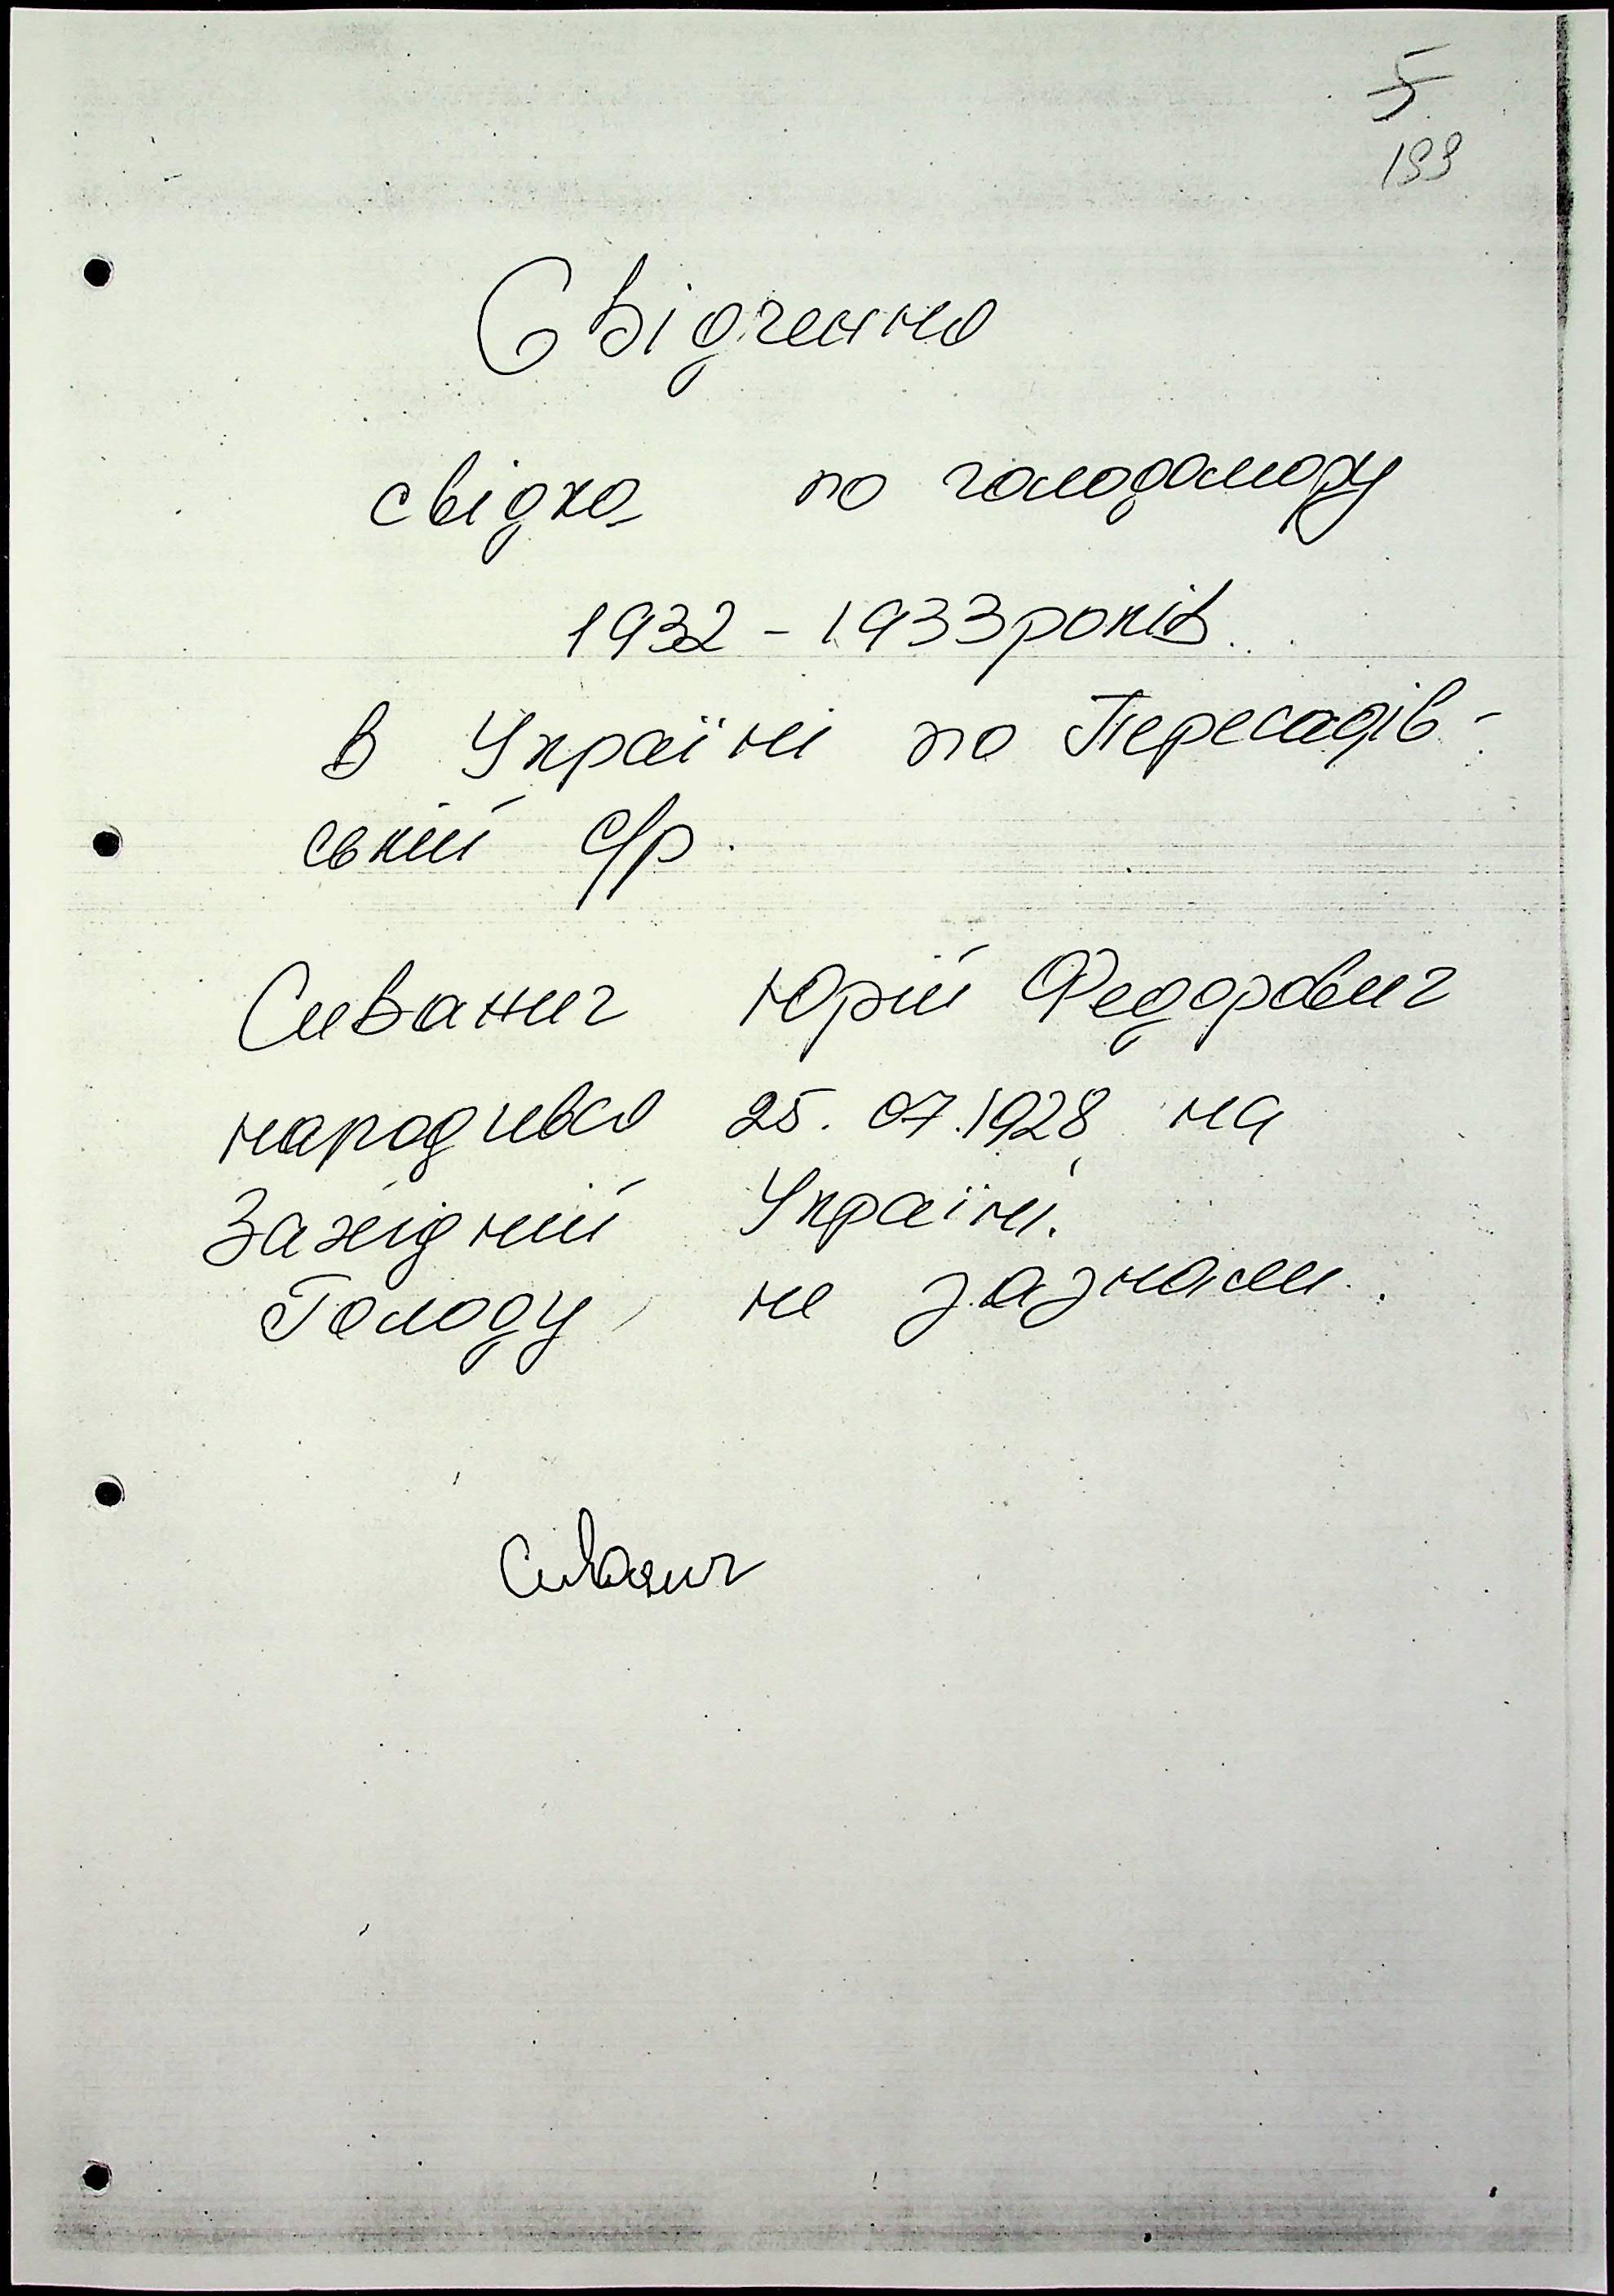 5
199
Свідчення
свідка по голодомору
1932 - 1933 років
в Україні по Пересадів-
ській с/р.
Сиванич Юрій Федорович
народився 25.07.1928 на
Західній Україні.
Голоду не зазнали.
Сиванич